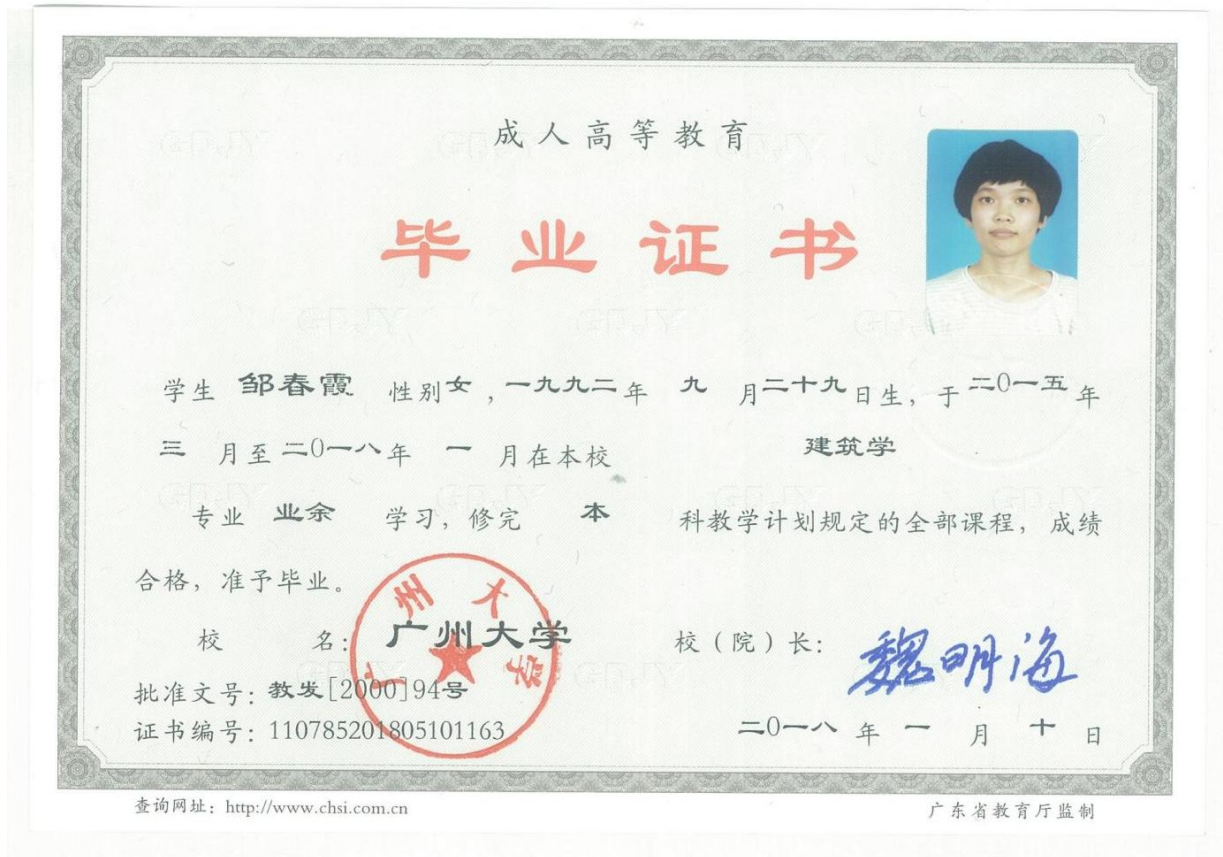 成人高等教育
毕业证书
学生 邹春霞 性别女，一九九二年 九 月二十九日生，于二0一五年
三 月至二0一八年 一 月在本校 建筑学
专业 业余 学习，修完 本 科教学计划规定的全部课程，成绩
合格，准予毕业。
校 名：广州大学 校（院）长：魏明海
广州大学
批准文号：教发[2000]94号
证书编号：110785201805101163 二0一八 年 一 月 十 日
查询网址：http://www.chsi.com.cn 广东省教育厅监制